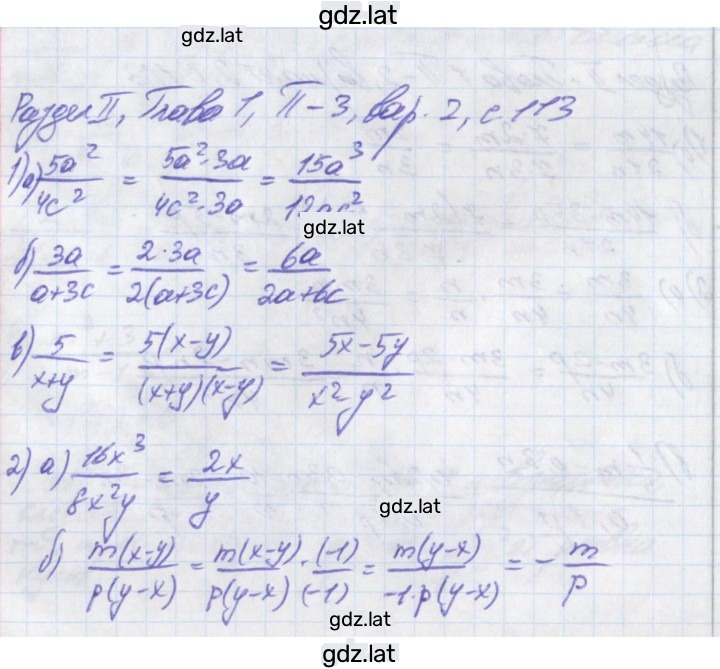 gdz.lat
gdz.lat
Раздел II, Глава 1, П-3, вар. 2, с.113
1) а) 5a²/4c² = 5a²·3a/4c²·3a = 15a³/12ac²
gdz.lat
б) 3a/a+3c = 2·3a/2(a+3c) = 6a/2a+6c
в) 5/x+y = 5(x-y)/(x+y)(x-y) = 5x-5y/x²-y²
2) а) 16x³/8x²y = 2x/y
gdz.lat
б) m(x-y)/p(y-x) = m(x-y)/p(y-x) · (-1)/(-1) = m(y-x)/-1·p(y-x) = - m/p
gdz.lat
gdz.lat